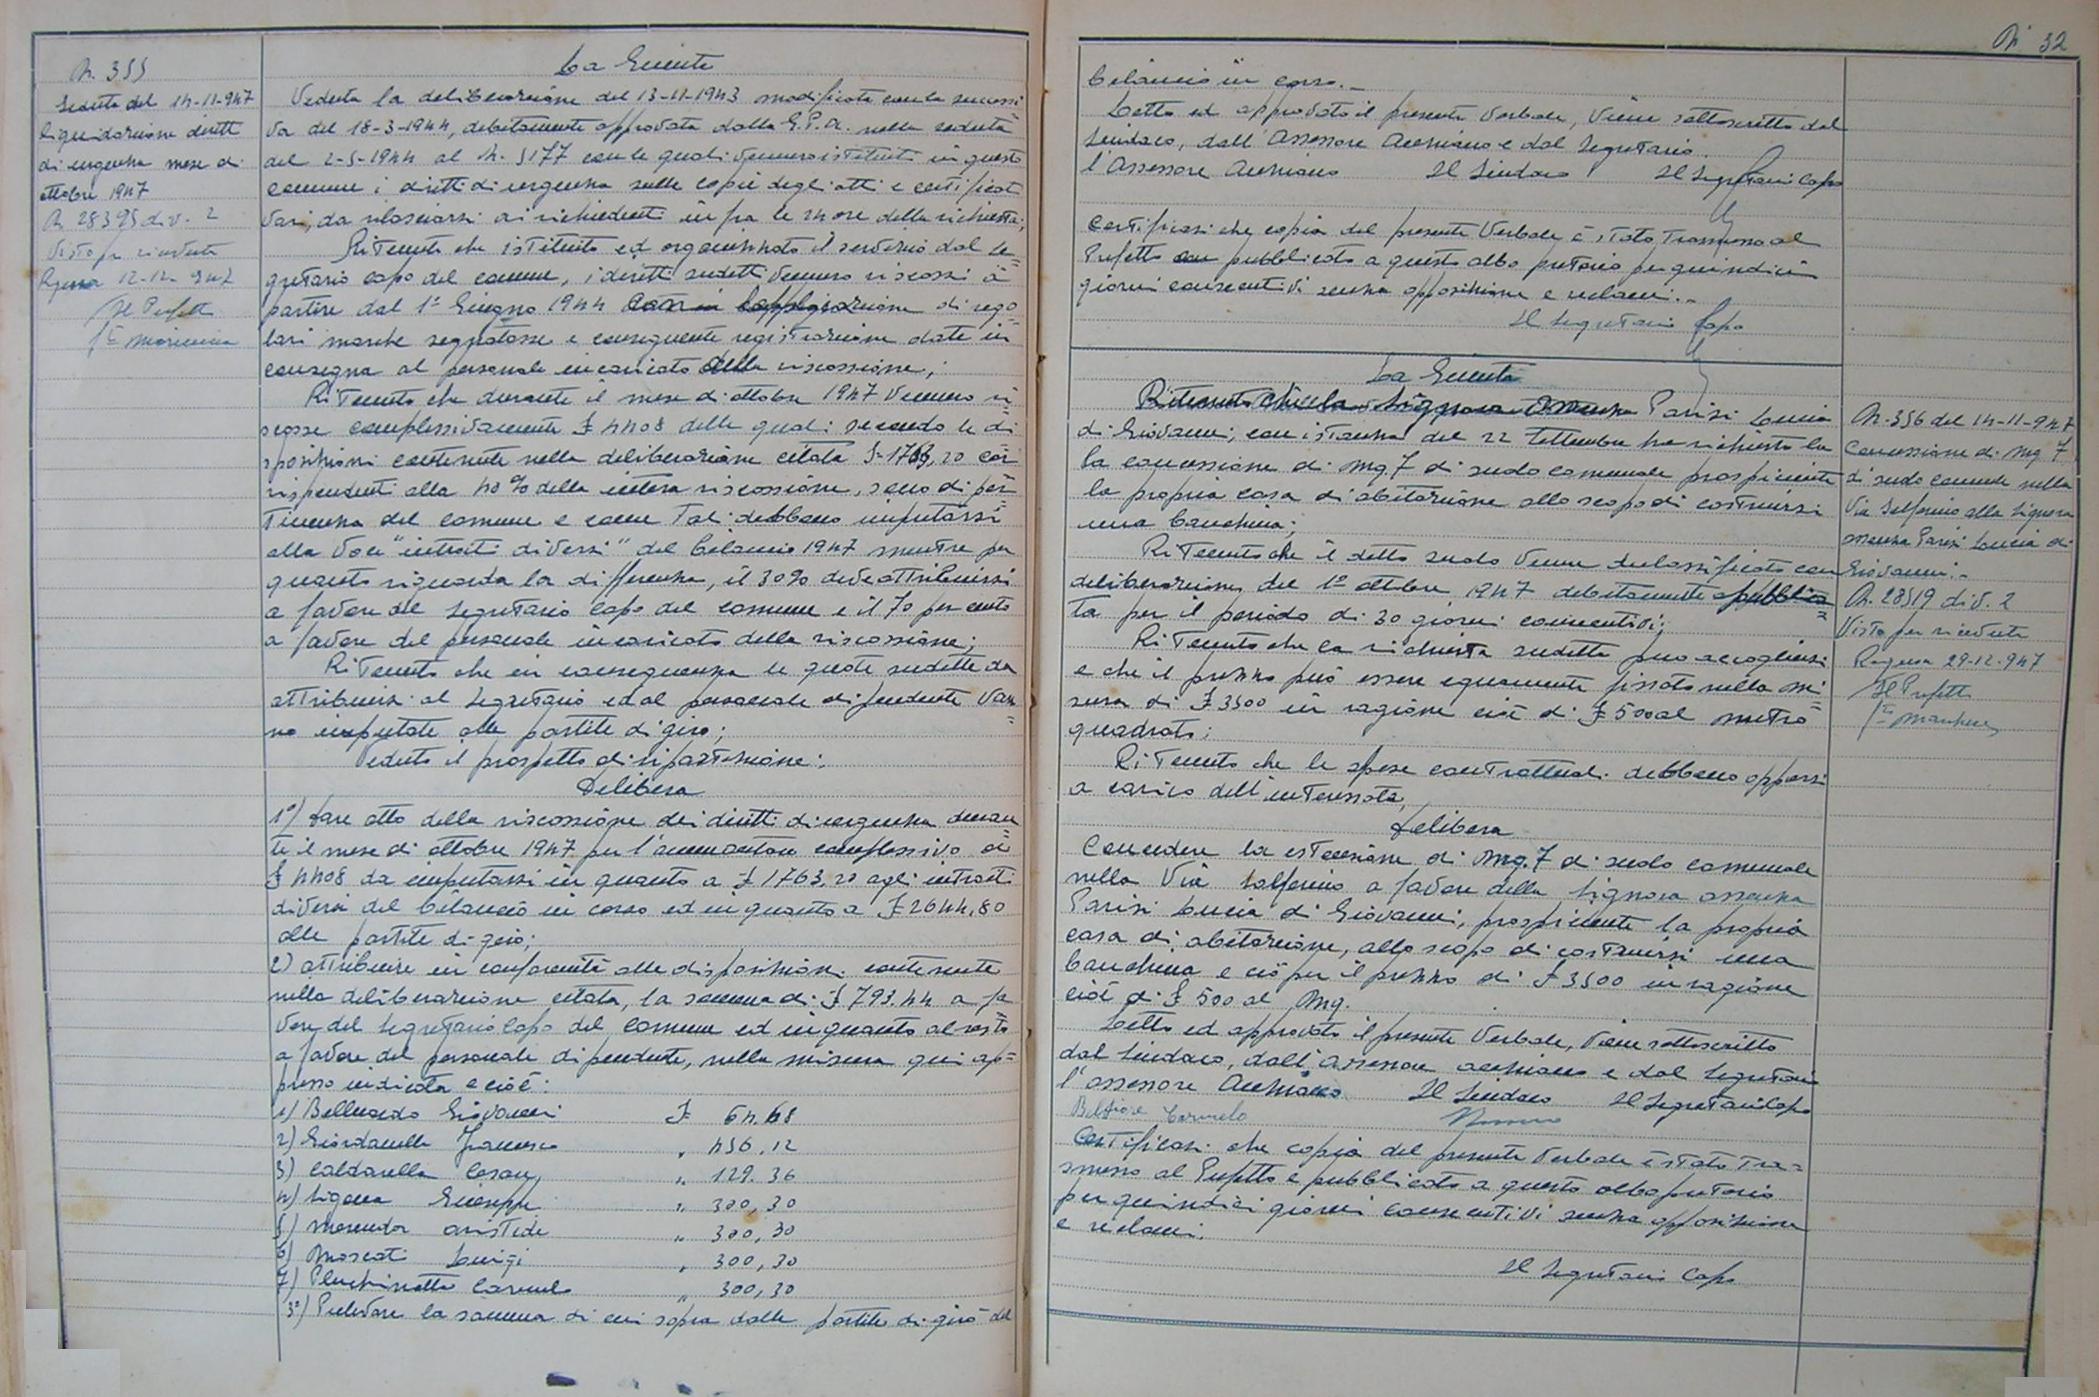 N. 355
Seduta del 14-11-947
Liquidazione diritti
di urgenza mese di
ottobre 1947
N. 28395 div. 2
Visto per ricevuta
Ragusa 12-12-947
Il Prefetto
La Giunta
Veduta la deliberazione del 13-11-1943 modificata con la successi
va del 18-3-1944, debitamente approvata dalla G.P.A. nella seduta
del 2-5-1944 al N. 5177 con le quali vennero istituiti in questo
comune i diritti di urgenza sulle copie degli atti e certificati
vari, da rilasciarsi ai richiedenti in fra le 24 ore della richiesta;
Ritenuto che istituito ed organizzato il servizio dal se=
gretario capo del comune, i diritti sudetti vennero riscossi a
partire dal 1° Giugno 1944 con la applicazione di rego=
lari marche segnatasse e conseguente registrazione date in
consegna al personale incaricato della riscossione;
Ritenuto che durante il mese di ottobre 1947 vennero ri=
scosse complessivamente £ 4408 delle quali secondo le di
sposizioni contenute nella deliberazione citata £ 1763,20 cor
rispondenti alla 40% della intera riscossione, sono di per
tinenza del comune e come tali debbono imputarsi
alla voce "introiti diversi" del bilancio 1947 mentre per
quanto riguarda la differenza, il 30% deve attribuirsi
a favore del Segretario capo del comune e il 70 per cento
a favore del personale incaricato della riscossione;
Ritenuto che in conseguenza le quote sudette da
attribuirsi al Segretario ed al personale dipendente van
no imputate alle partite di giro;
Veduto il prospetto di ripartizione;
Delibera
1°) fare atto della riscossione dei diritti di urgenza duran
te il mese di ottobre 1947 per l'ammontare complessivo di
£ 4408 da imputarsi in quanto a £ 1763,20 agli introiti
diversi del bilancio in corso ed in quanto a £ 2644,80
alle partite di giro;
2) attribuire in conformità alle disposizioni contenute
nella deliberazione citata, la somma di £ 793.44 a fa
vore del Segretario Capo del comune ed in quanto al resto
a favore del personale dipendente, nella misura qui ap=
presso indicata e cioè:
1) Belluardo Giovanni £ 64,68
2) Giordanella Francesco " 456,12
3) Caldarella Cesare " 129.36
4) Ligama Giuseppe " 300,30
5) Morando Aristide " 300,30
6) Moscati Luigi " 300,30
7) Pluchinotta Carmelo " 300,30
3°) Prelevare la somma di cui sopra dalle partite di giro del
N° 32
bilancio in corso.-
Letto ed approvato il presente Verbale, viene sottoscritto dal
Sindaco, dall'Assessore Anziano e dal Segretario.
l'Assessore Anziano Il Sindaco Il Segretario Capo
Certificasi che copia del presente Verbale è stato trasmesso al
Prefetto e pubblicato a questo albo pretorio per quindici
giorni consecutivi senza opposizione e reclami.-
Il Segretario Capo
La Giunta
Ritenuto che la Signora Assenza Parisi Lucia
di Giovanni, con istanza del 22 Settembre ha richiesto la
la concessione di mq 7 di suolo comunale prospiciente
la propria casa di abitazione allo scopo di costruirsi
una banchina;
Ritenuto che il detto suolo venne declassificato con
deliberazione del 1° ottobre 1947 debitamente pubblica
ta per il periodo di 30 giorni consecutivi;
Ritenuto che la richiesta sudetta può accogliersi
e che il prezzo può essere equamente fissato nella mi
sura di £ 3500 in ragione cioè di £ 500 al metro
quadrato;
Ritenuto che le spese contrattuali debbono apporsi
a carico dell'interessata,
Delibera
Concedere la estensione di mq. 7 di suolo comunale
nella Via Solferino a favore della Signora Assenza
Parisi Lucia di Giovanni, prospiciente la propria
casa di abitazione, allo scopo di costruirsi una
banchina e ciò per il prezzo di £ 3500 in ragione
cioè di £ 500 al mq.
Letto ed approvato il presente Verbale, viene sottoscritto
dal Sindaco, dall'Assessore Anziano e dal Segretario
l'Assessore Anziano Il Sindaco Il Segretario Capo
Belfiore Carmelo
Certificasi che copia del presente Verbale è stato tra=
smesso al Prefetto e pubblicato a questo albo pretorio
per quindici giorni consecutivi senza opposizione
e reclami.
Il Segretario Capo
N. 356 del 14-11-947
Concessione di mq 7
di suolo comunale nella
Via Solferino alla Signora
Assenza Parisi Lucia di
Giovanni.-
N. 28519 div. 2
Visto per ricevuta
Ragusa 29-12-947
Il Prefetto